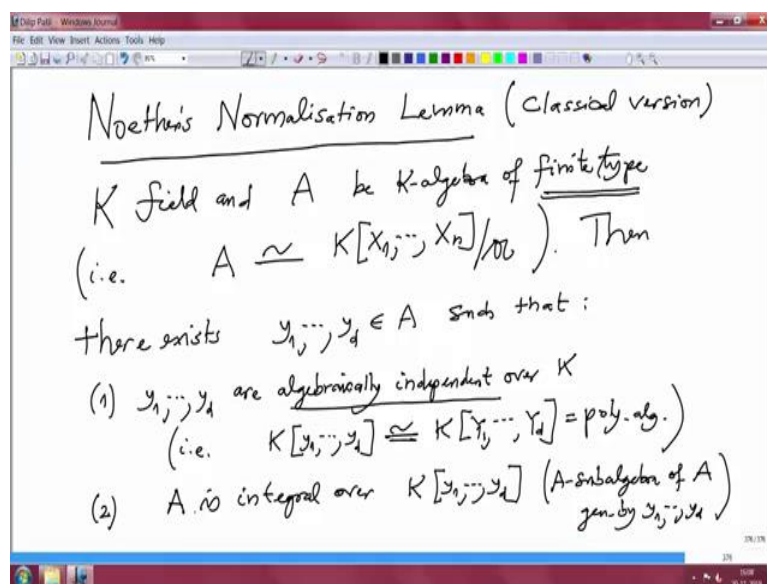 Dilip Patil - Windows Journal
File Edit View Insert Actions Tools Help
Noether's Normalisation Lemma (Classical version)
K field and A be K-algebra of finite type
(i.e. A ≃ K[X₁,⋯,Xₙ]/𝔞). Then
there exists y₁,⋯,y_d ∈ A such that :
(1) y₁,⋯,y_d are algebraically independent over K
(i.e. K[y₁,⋯,y_d] ≅ K[Y₁,⋯,Y_d] = poly. alg.)
(2) A is integral over K[y₁,⋯,y_d] (A-subalgebra of A
gen. by y₁,⋯,y_d)
376/376
376